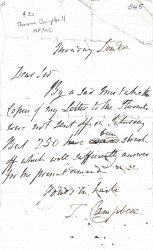 £30
Thomas Campbell
MP/SC
545
Monday London
Dear Sir
By a sad mistake the
Copies of my Letter to the Students
were not sent off on Saturday
But 250 have been struck
off which will sufficiently answer
for the present demand
Yours in haste
T. Campbell